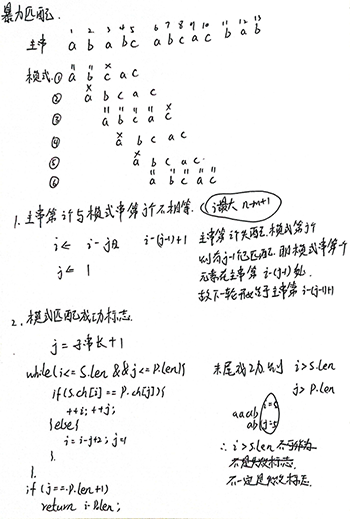 暴力匹配.
1 2 3 4 5 6 7 8 9 10 11 12 13
主串 a b a b c a b c a c b a b
模式① a b c a c
② a b c a c
③ a b c a c
④ a b c a c
⑤ a b c a c
⑥ a b c a c
1. 主串第 i个与模式串第 j个不相等. i最大 n-m+1
i ← i-j+2 i-(j-1)+1
j ← 1
主串第 i个失配, 模式第 j个
则前 j-1 个已匹配. 则模式串第一个
元素在主串第 i-(j-1) 处.
故下一轮开始于主串第 i-(j-1)+1
2. 模式匹配成功标志.
j = 子串长 + 1
while(i<= S.len && j<= P.len){
if(S.ch[i] == P.ch[j]){
++i; ++j;
}else{
i = i-j+2; j=1
}
}
if (j == P.len+1)
return i-P.len;
末尾成功, 则 i > S.len
j > P.len
aaab i=5
ab j=3
∴ i > S.len
不一定是失败标志.